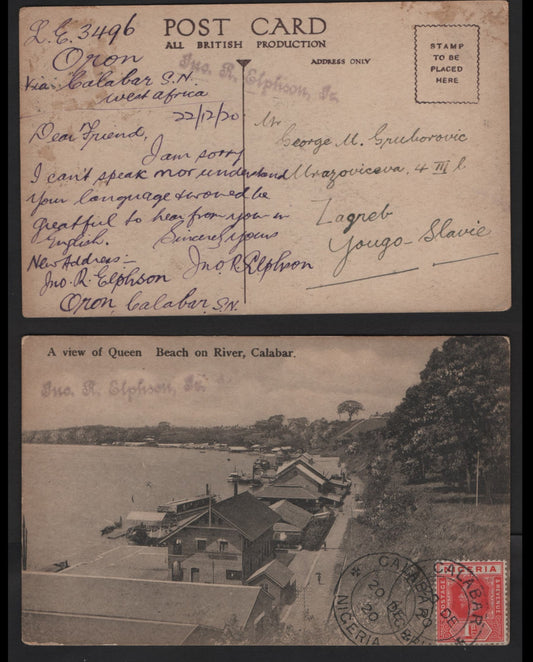 L.E. 3496
Oron
Via Calabar S.N.
West Africa
22/12/20
Dear Friend,
I am sorry
I can't speak nor understand
your language & would be
greatful to hear from you in
English. Sincerely yours
Jno. R. Elphson
New Address:-
Jno. R. Elphson
Oron, Calabar, S.N.
POST CARD
ALL BRITISH PRODUCTION
ADDRESS ONLY
Jno. R. Elphson, Jr.
STAMP
TO BE
PLACED
HERE
Mr
George M. Gruborovic
Mrazoviceva, 4 III l.
Zagreb
Yougo-Slavie
A view of Queen Beach on River, Calabar.
Jno. R. Elphson, Jr.
CALABAR
20 DEC
20
NIGERIA
CALABAR
20 DE
NIGERIA
POSTAGE
& REVENUE